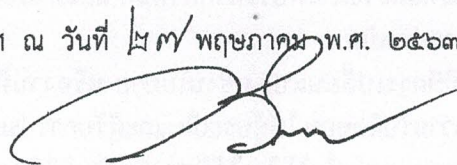 ณ วันที่ ๒๗ พฤษภาคม พ.ศ. ๒๕๖๓